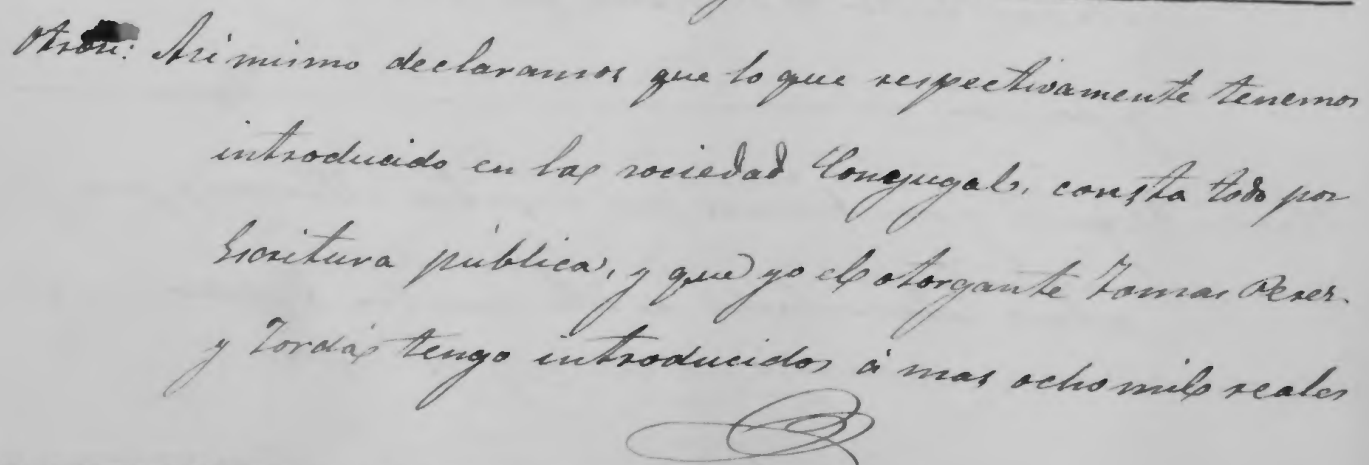 Otrosi: Asi mismo declaramos que lo que respectivamente tenemos
introducido en la sociedad Conyugal, consta todo por
Escritura pública, y que yo el otorgante Tomas Perez
y Jordá tengo introducidos á mas ocho mil reales